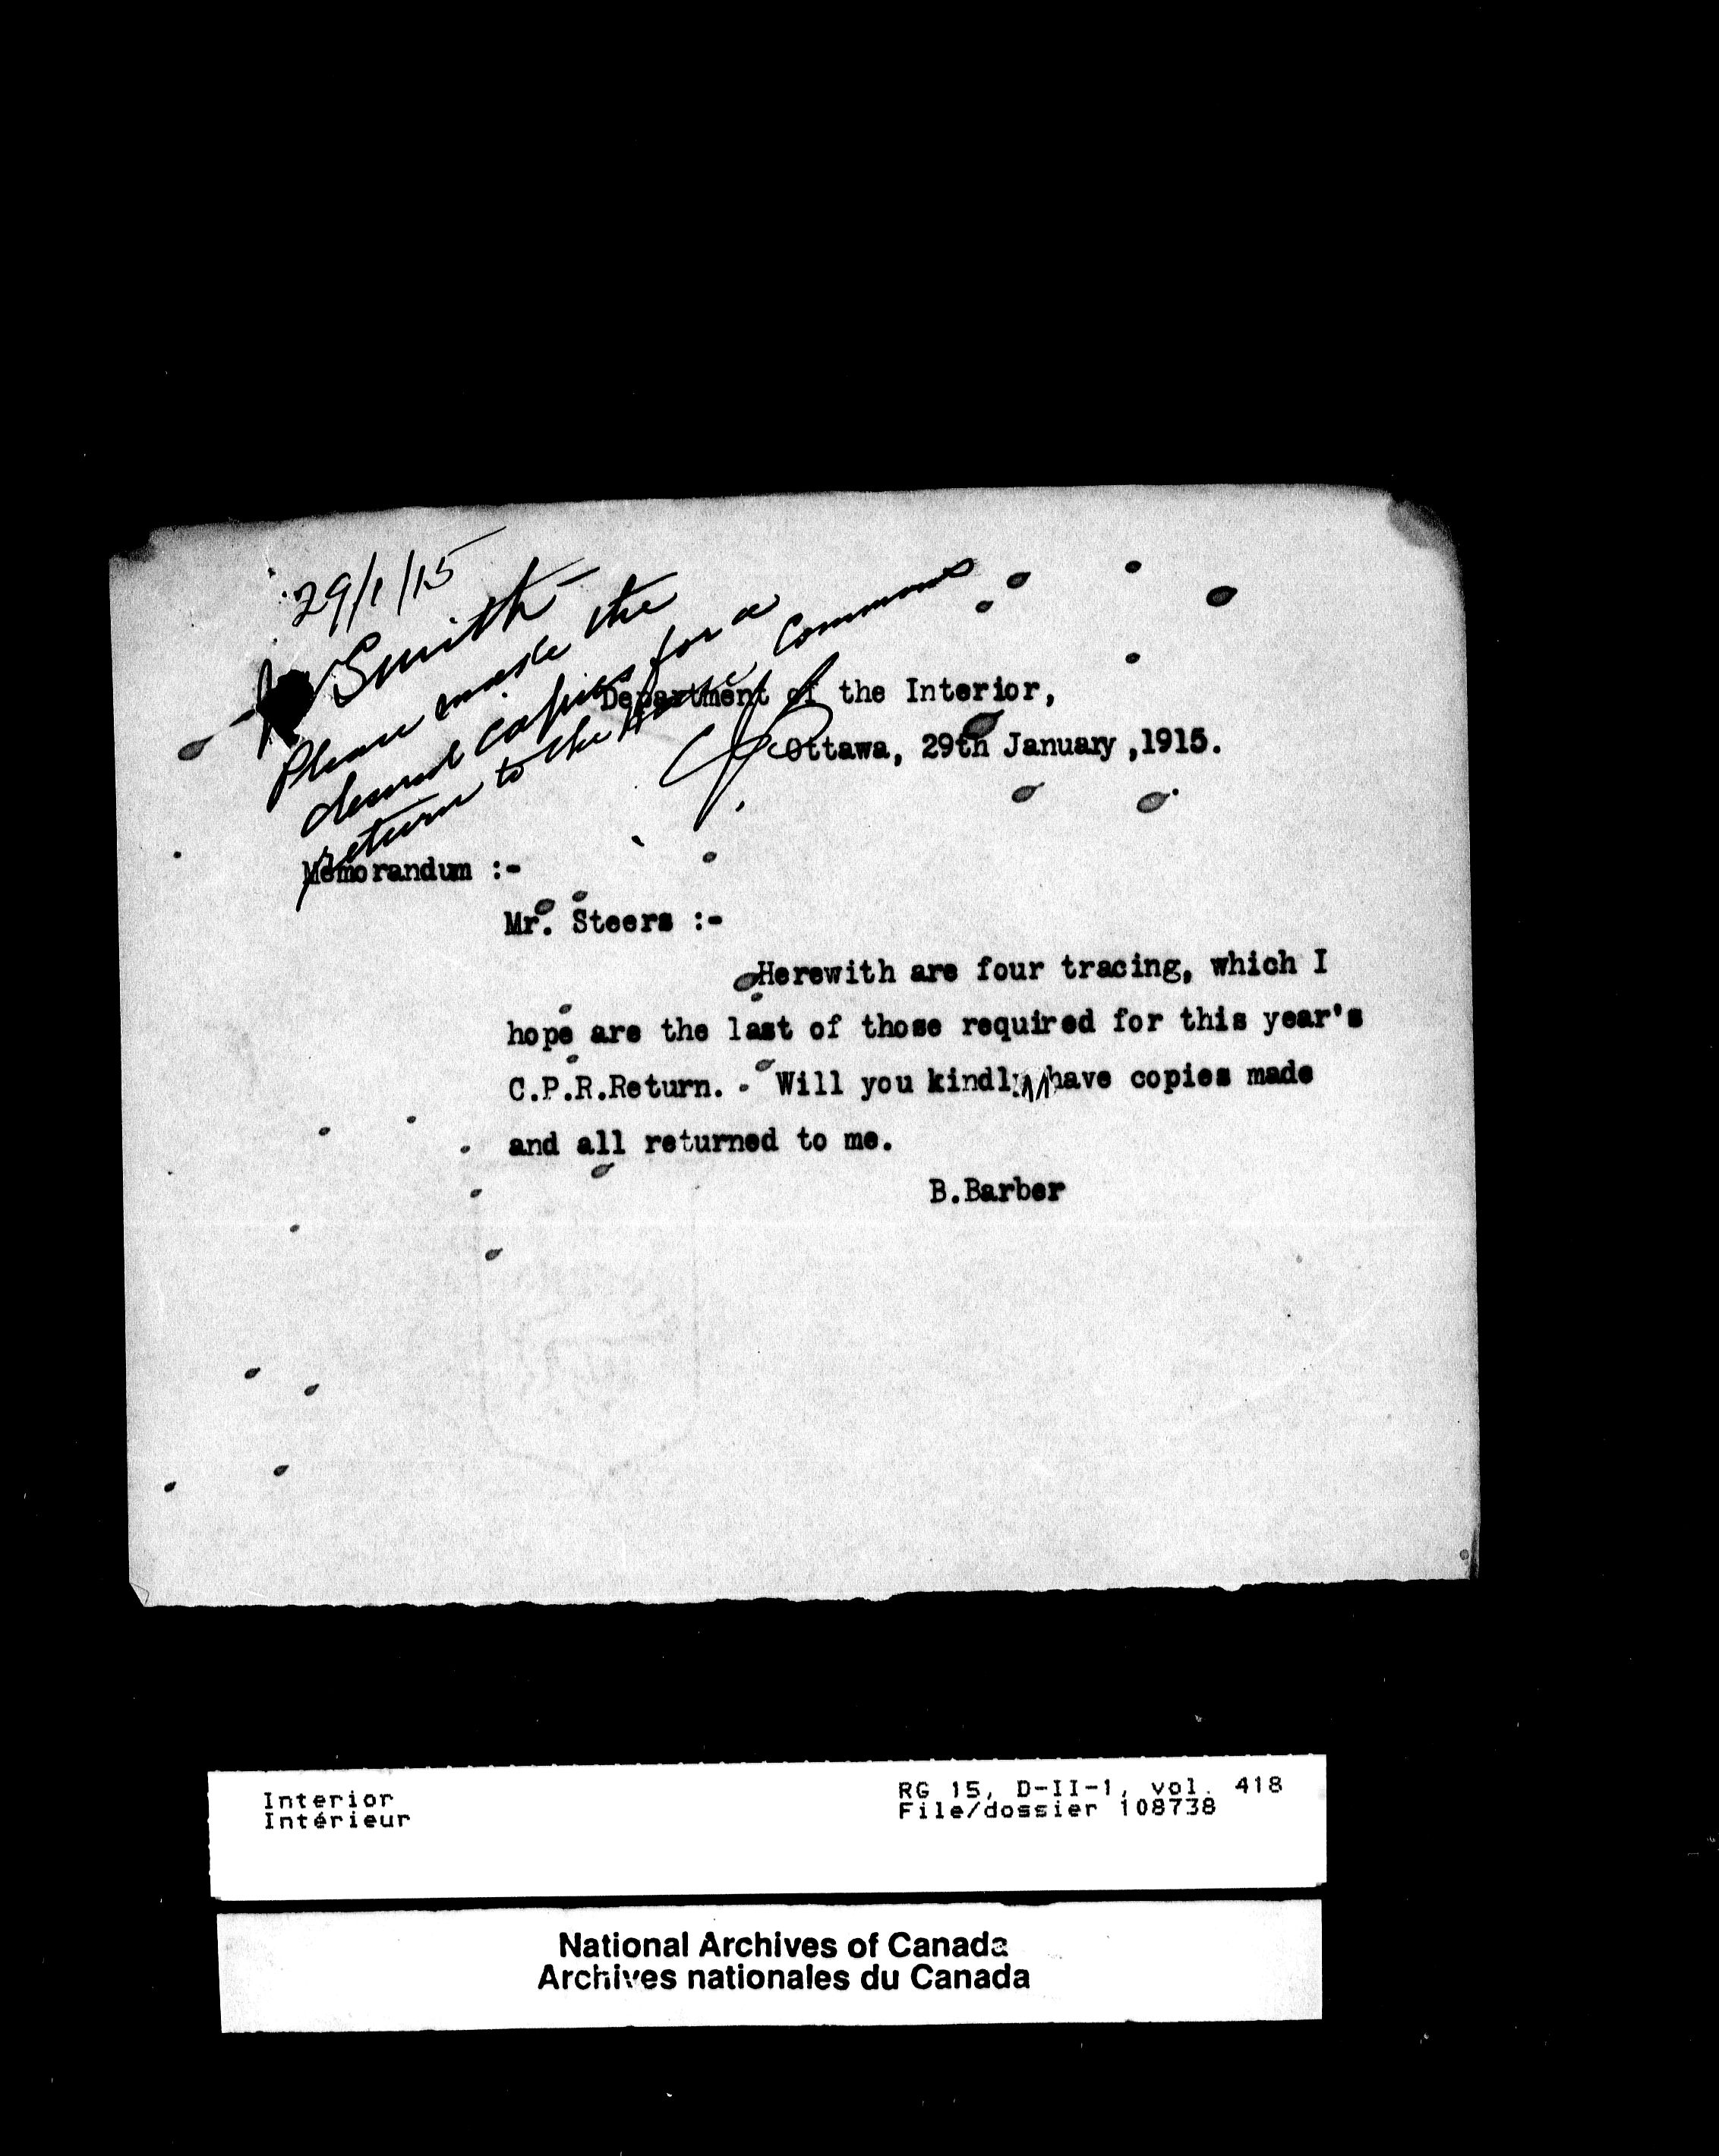 29/1/15
Smith
Please make the
desired copies for a
return to the House Commons
Department of the Interior,
Ottawa, 29th January ,1915.
Memorandum :-
Mr. Steers :-
Herewith are four tracing, which I
hope are the last of those required for this year's
C.P.R.Return. - Will you kindly have copies made
and all returned to me.
B.Barber
Interior
Intérieur
RG 15, D-II-1, vol. 418
File/dossier 108738
National Archives of Canada
Archives nationales du Canada